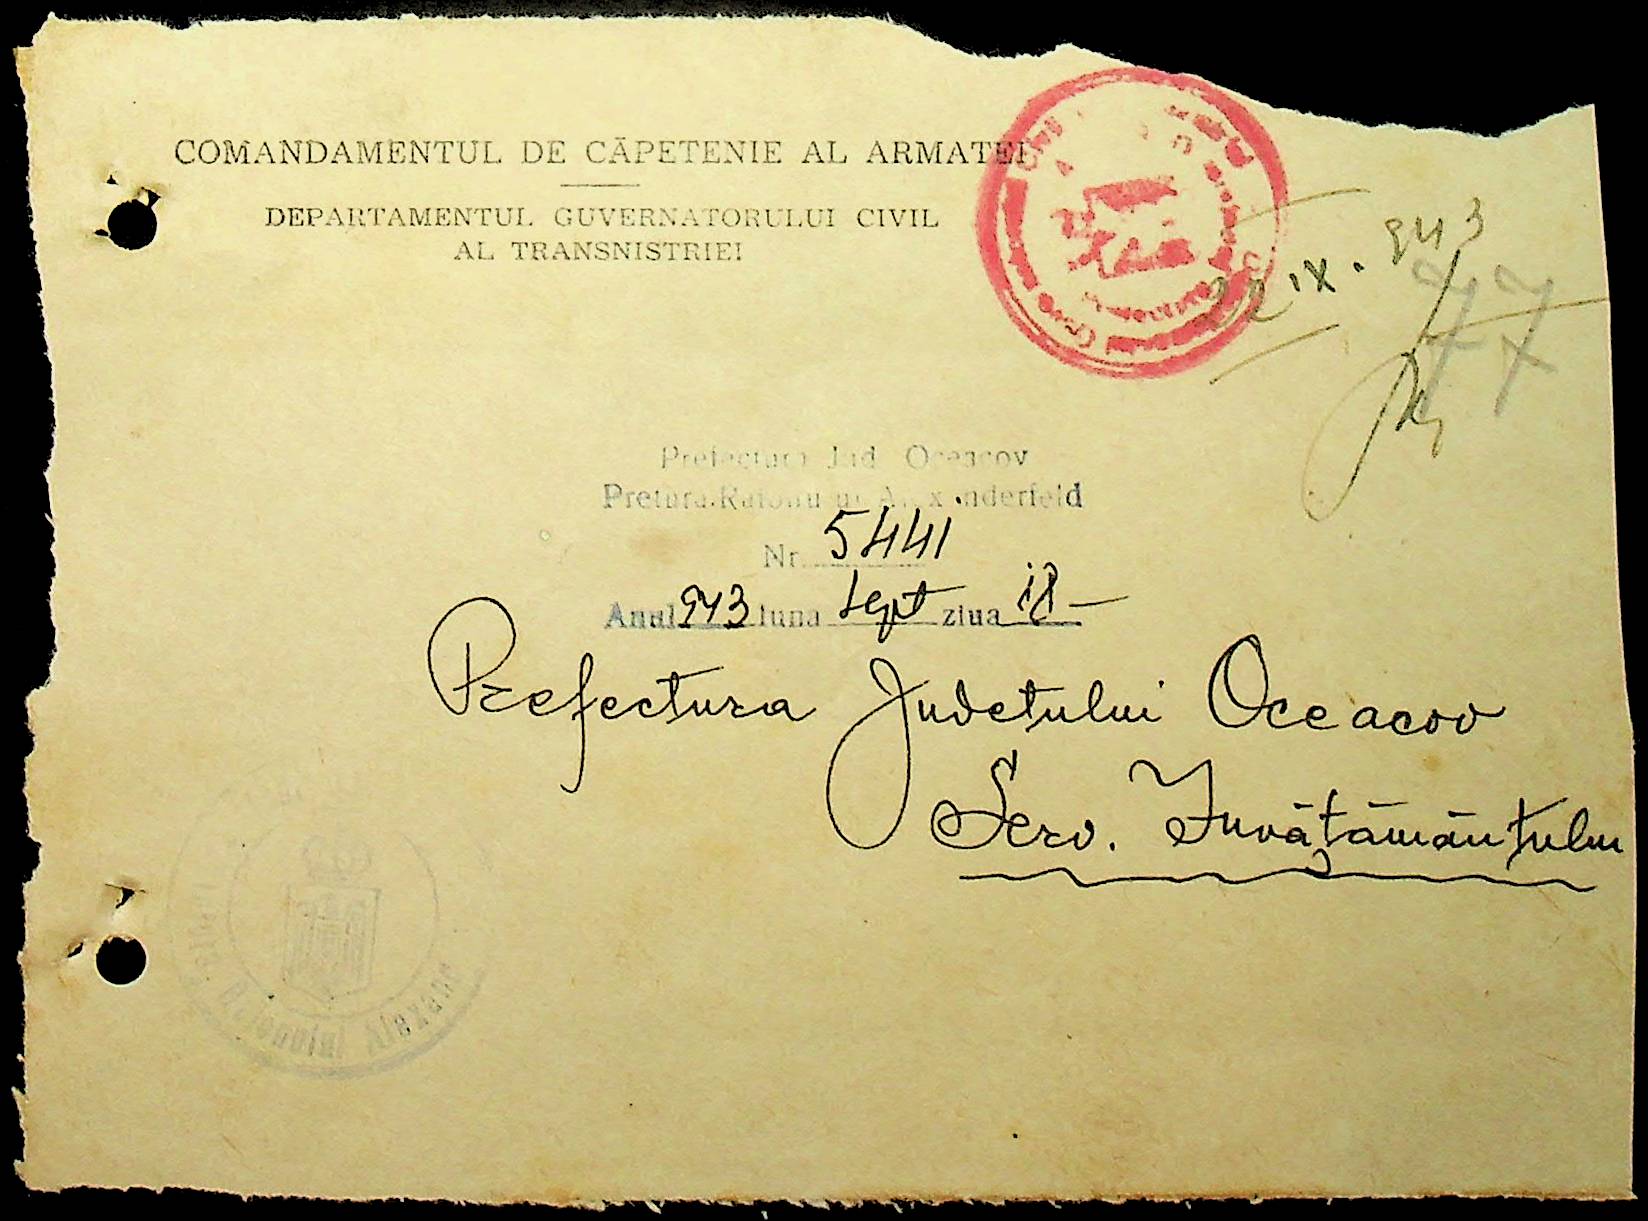 COMANDAMENTUL DE CĂPETENIE AL ARMATEI
DEPARTAMENTUL GUVERNATORULUI CIVIL
AL TRANSNISTRIEI
22 IX. 943
77
Prefectura Jud. Oceacov
Pretura Raionului Alexanderfeld
Nr. 5441
Anul 943 luna Sept ziua 18 —
Prefectura Judetului Oceacov
Serv. Învățământului
Raionului Alexand